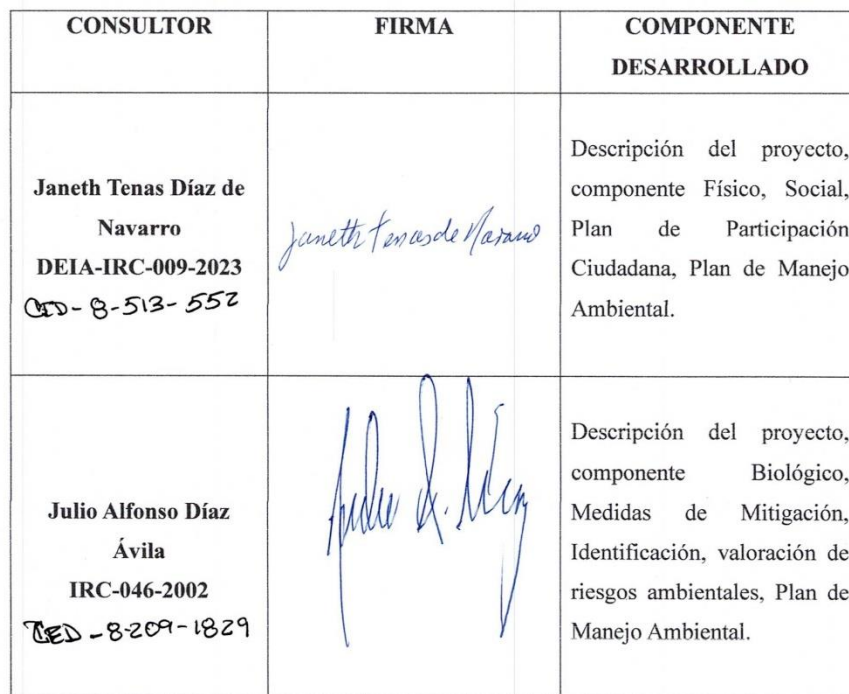 CONSULTOR
FIRMA
COMPONENTE
DESARROLLADO
Janeth Tenas Díaz de
Navarro
DEIA-IRC-009-2023
CED-8-513-552
Janeth Tenas de Navarro
Descripción del proyecto,
componente Físico, Social,
Plan de Participación
Ciudadana, Plan de Manejo
Ambiental.
Julio Alfonso Díaz
Ávila
IRC-046-2002
CED-8-209-1829
Descripción del proyecto,
componente Biológico,
Medidas de Mitigación,
Identificación, valoración de
riesgos ambientales, Plan de
Manejo Ambiental.